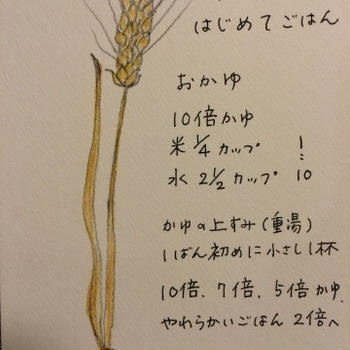 はじめてごはん
おかゆ
10倍かゆ
米 1/4 カップ 1
:
水 2 1/2 カップ 10
かゆの上ずみ(重湯)
1ばん初めに小さじ1杯
10倍、7倍、5倍かゆ、
やわらかいごはん 2倍へ